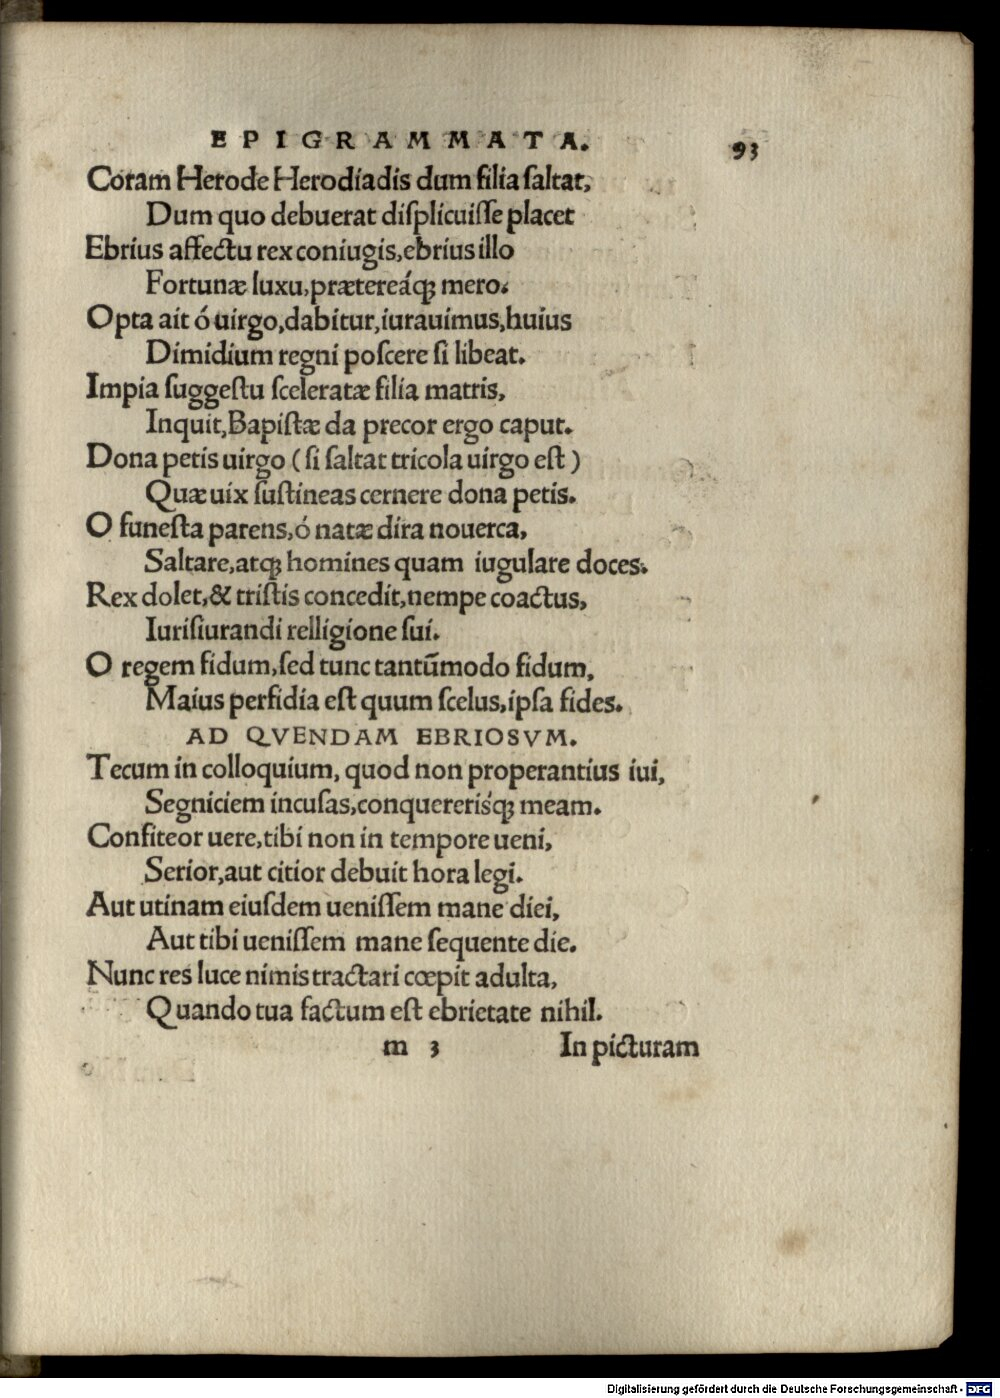 EPIGRAMMATA. 93
Coram Herode Herodiadis dum filia ſaltat,
Dum quo debuerat diſplicuiſſe placet
Ebrius affectu rex coniugis, ebrius illo
Fortunæ luxu, prætereáqꝫ mero.
Opta ait ó uirgo, dabitur, iurauimus, huius
Dimidium regni poſcere ſi libeat.
Impia ſuggeſtu ſceleratæ filia matris,
Inquit, Bapiſtæ da precor ergo caput.
Dona petis uirgo (ſi ſaltat tricola uirgo eſt)
Quæ uix ſuſtineas cernere dona petis.
O funeſta parens, ó natæ dira nouerca,
Saltare, atqꝫ homines quam iugulare doces.
Rex dolet, & triſtis concedit, nempe coactus,
Iuriſiurandi relligione ſui.
O regem fidum, ſed tunc tantūmodo fidum,
Maius perfidia eſt quum ſcelus, ipſa fides.
AD QVENDAM EBRIOSVM.
Tecum in colloquium, quod non properantius iui,
Segniciem incuſas, conquereriśqꝫ meam.
Confiteor uere, tibi non in tempore ueni,
Serior, aut citior debuit hora legi.
Aut utinam eiuſdem ueniſſem mane diei,
Aut tibi ueniſſem mane ſequente die.
Nunc res luce nimis tractari cœpit adulta,
Quando tua factum eſt ebrietate nihil.
m 3 In picturam
Digitalisierung gefördert durch die Deutsche Forschungsgemeinschaft - DFG